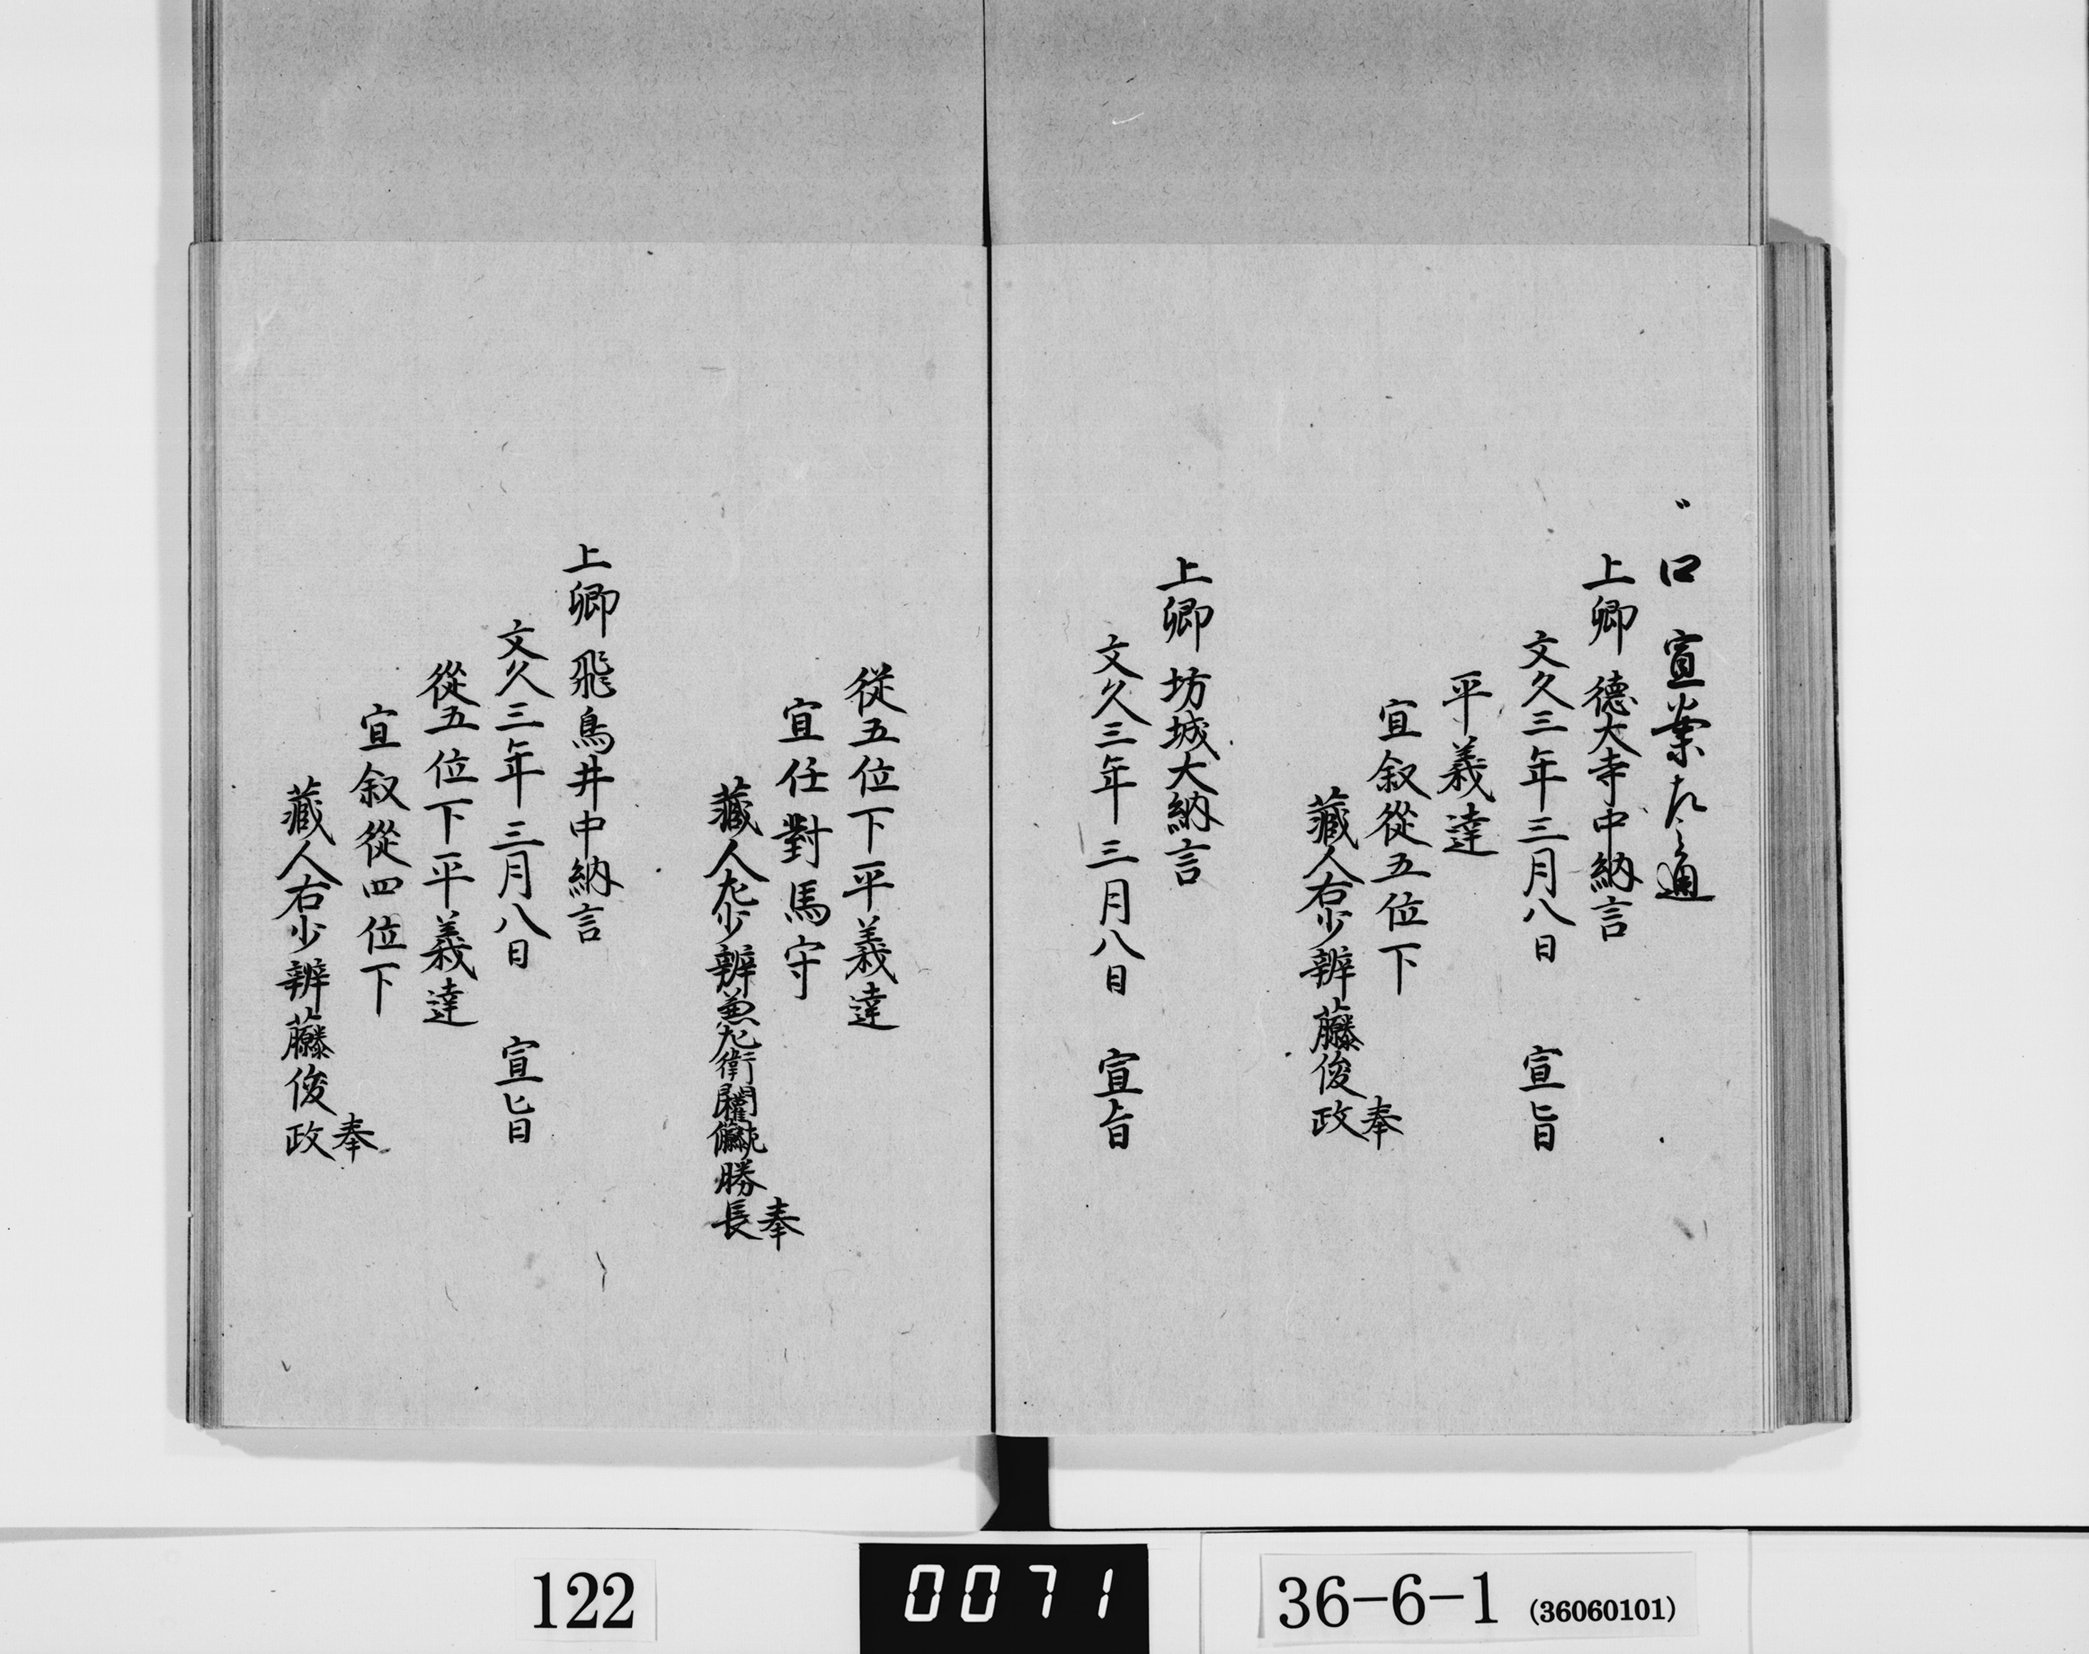 口 宣案
上卿 德大寺中納言
文久三年三月八日 宣旨
平義達
宣叙從五位下
藏人右少辨藤俊政奉
上卿 坊城大納言
文久三年三月八日 宣旨
從五位下平義達
宣任對馬守
藏人左少辨兼左衛門權佐藤勝長奉
上卿 飛鳥井中納言
文久三年三月八日 宣旨
從五位下平義達
宣叙從四位下
藏人右少辨藤俊政奉
122
0071
36-6-1 (36060101)